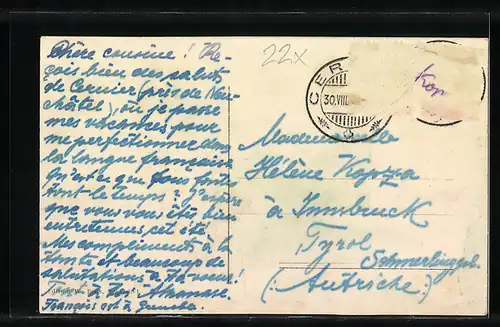 Chère cousine! Re-
çois bien des saluts
de Cernier (près de Neu-
châtel) où je passe
mes vacances pour
me perfectionner dans
la langue française
qu'est-ce que vous faites
tout le temps? J'espère
que vous vous êtes bien
entretenues cet été.
Mes compliments à la
tante et beaucoup de
salutations à
François est à Grenoble.
22x
CER
30.VIII.
Kor
Mademoiselle
Hélène Kapza
à Innsbruck
Tyrol
Schmerlingstr.
(Autriche)